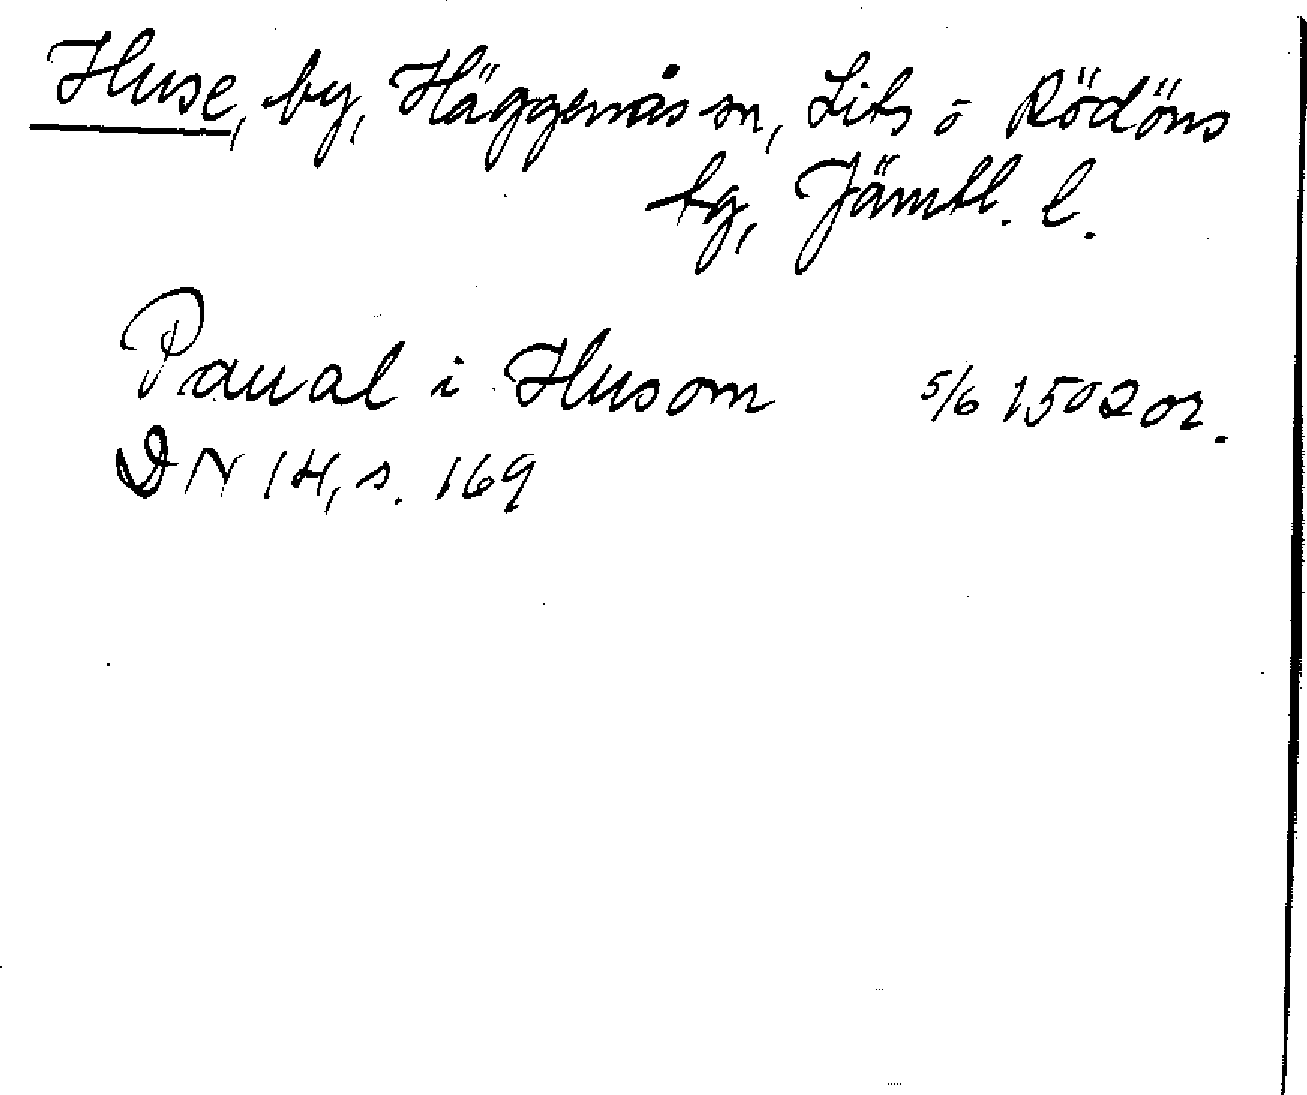 Huse, by, Häggenås sn, Lits o Rödöns
tg, Jämtl. l.
Paual i Husom 5/6 1502 or.
DN 14, s. 169